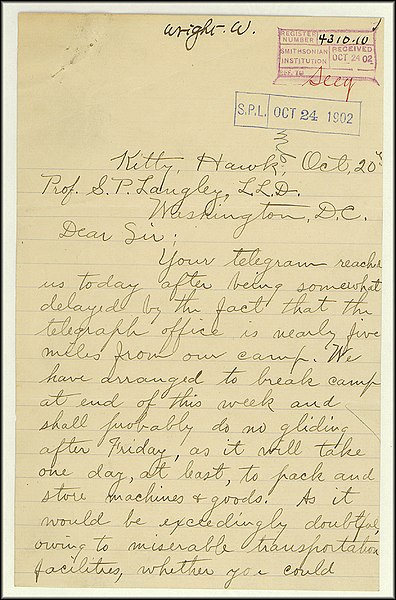 Wright-W.
REGISTER
NUMBER 4310.10
SMITHSONIAN
INSTITUTION
RECEIVED
OCT 24 02
REF. TO
Secy
S.P.L. OCT 24 1902
Kitty Hawk, Oct, 20th
Prof. S. P. Langley, L.L.D.
Washington, D.C.
Dear Sir;
Your telegram reached
us today after being somewhat
delayed by the fact that the
telegraph office is nearly five
miles from our camp. We
have arranged to break camp
at end of this week and
shall probably do no gliding
after Friday, as it will take
one day, at least, to pack and
store machines & goods. As it
would be exceedingly doubtful,
owing to miserable transportation
facilities, whether you could